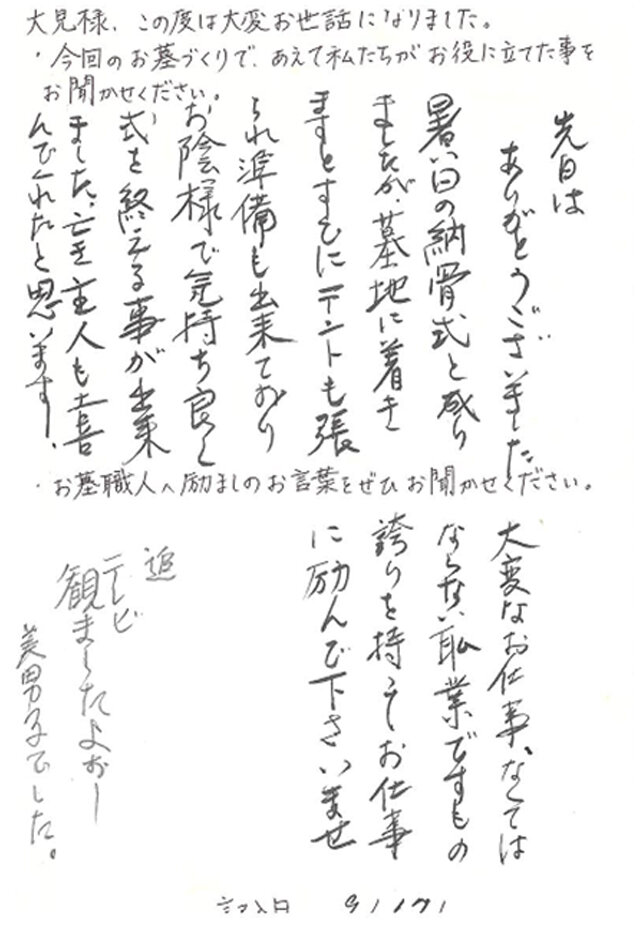 大見様、この度は大変お世話になりました。
・今回のお墓づくりで、あえて私たちがお役に立てた事を
お聞かせください。
先日は
ありがとうございました
暑い日の納骨式と成り
ましたが、墓地に着き
ますとすでにテントも張
られ準備も出来ており
お陰様で気持ち良く
式を終える事が出来
ました、亡き主人も喜
んでくれたと思います。
・お墓職人へ励ましのお言葉をぜひお聞かせください。
大変なお仕事、なくては
ならない職業ですもの
誇りを持ってお仕事
に励んで下さいませ
追
テレビ
観ましたよおー
美男子でした。
記入日